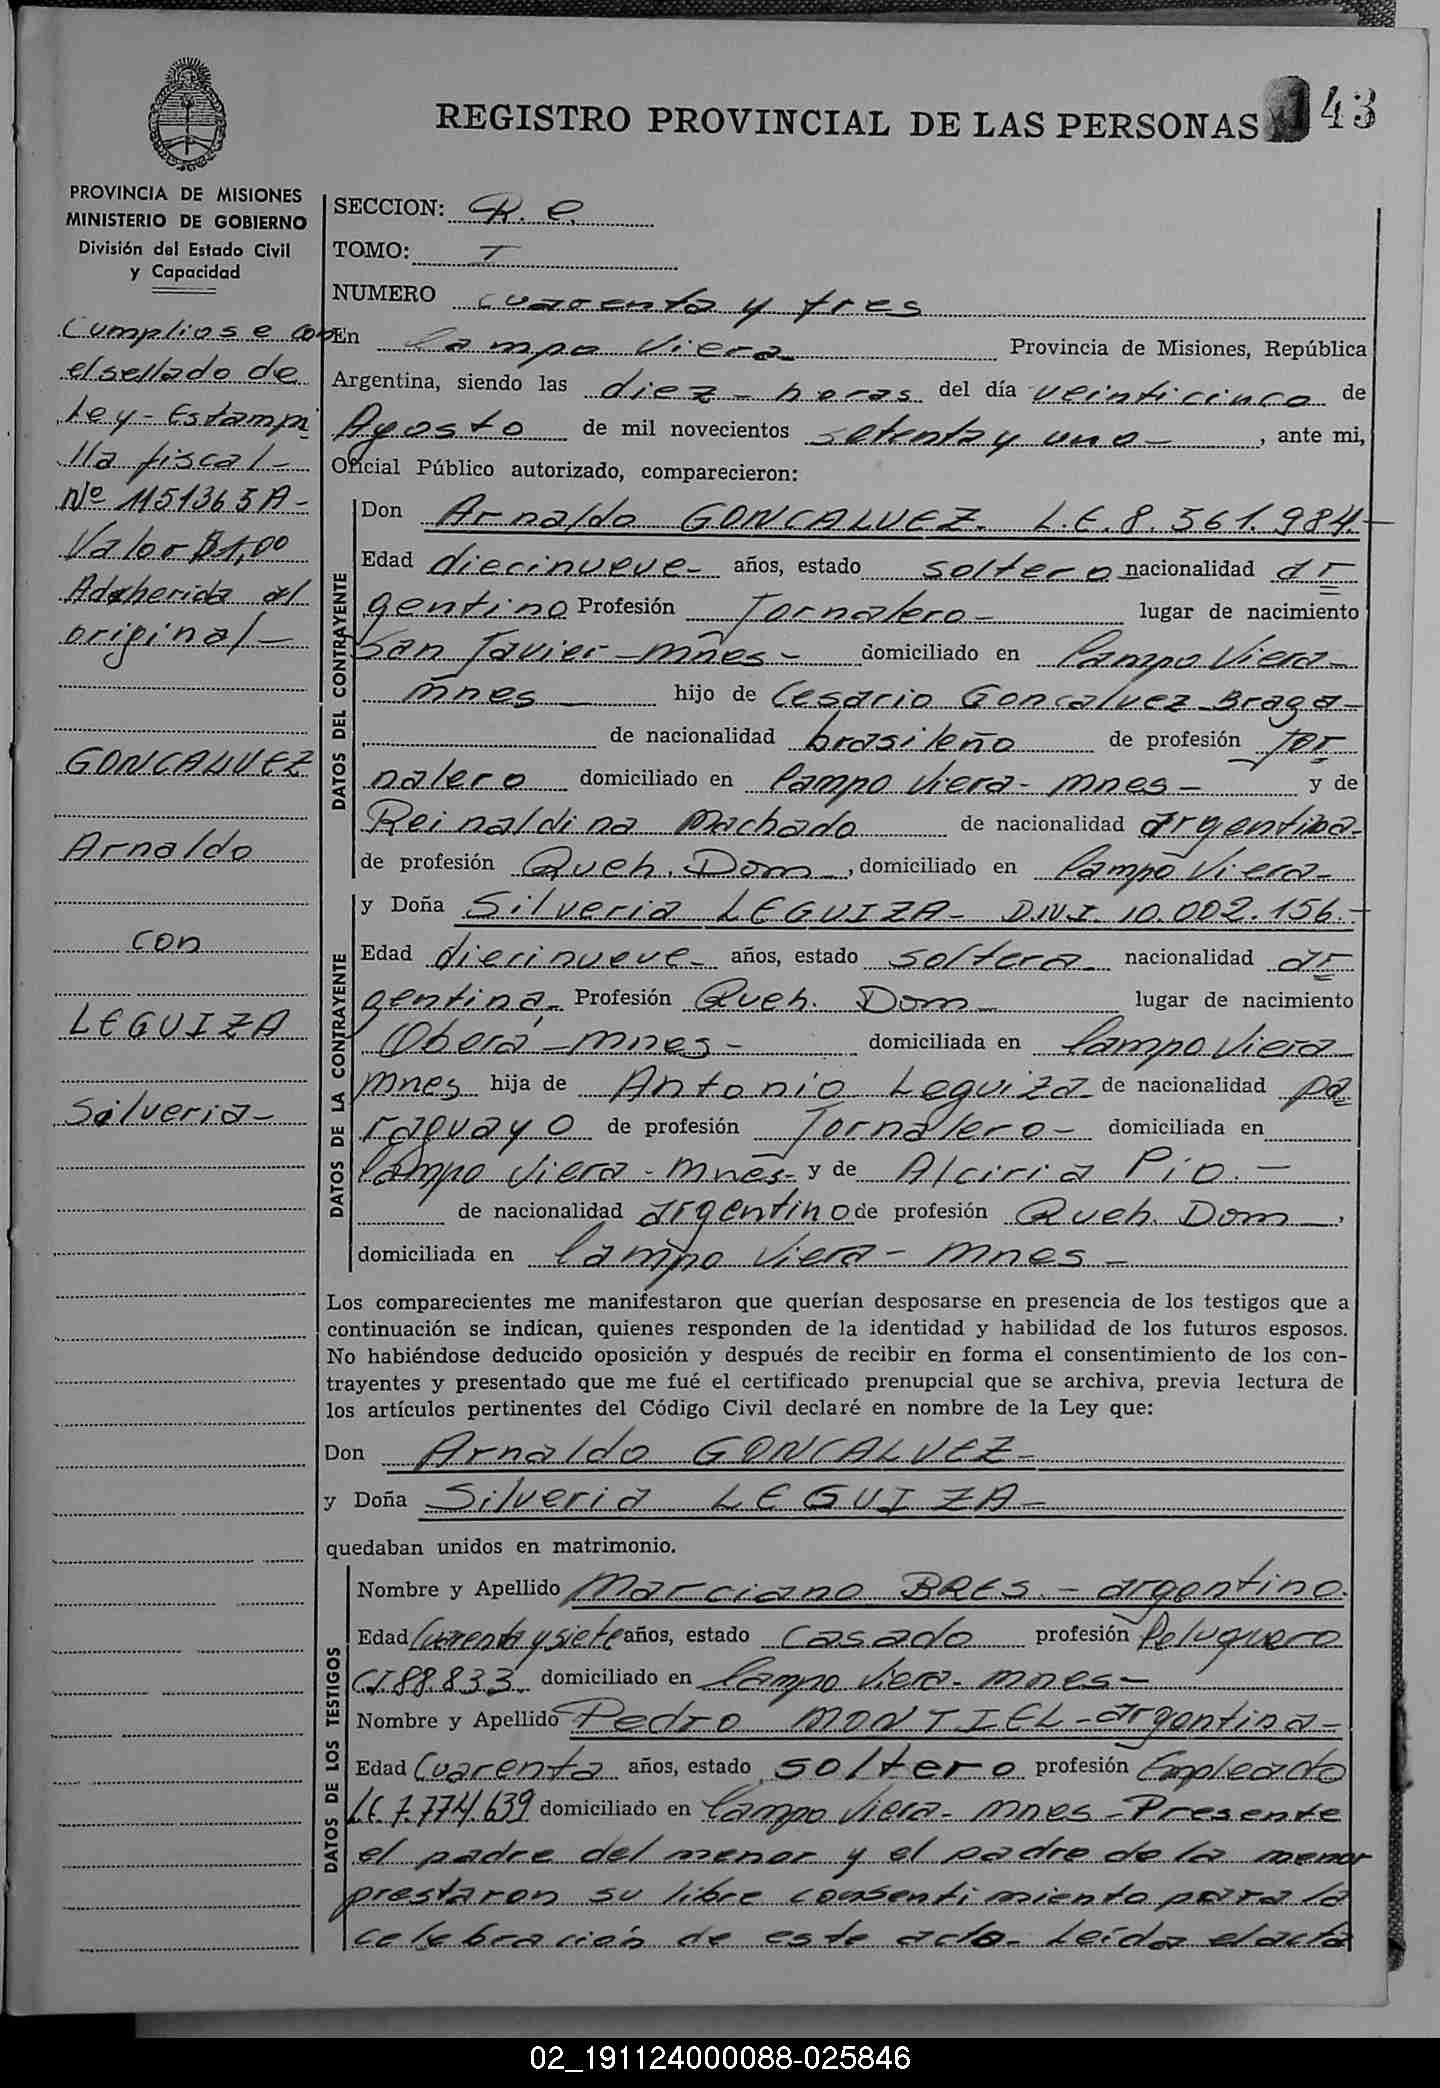 REGISTRO PROVINCIAL DE LAS PERSONAS 143
PROVINCIA DE MISIONES
MINISTERIO DE GOBIERNO
División del Estado Civil
y Capacidad
Cumpliose con
el sellado de
Ley - Estampi
lla fiscal -
Nº 1151365 A -
Valor $1,00
Adherida al
original -
GONCALVEZ
Arnaldo
con
LEGUIZA
Silveria -
SECCION: R. C.
TOMO: I
NUMERO cuarenta y tres
En Campo Viera Provincia de Misiones, República
Argentina, siendo las diez - horas del día veinticinco de
Agosto de mil novecientos setenta y uno - , ante mi,
Oficial Público autorizado, comparecieron:
DATOS DEL CONTRAYENTE
Don Arnaldo GONCALVEZ. L.E. 8.561.984 -
Edad diecinueve - años, estado soltero nacionalidad ar
gentino Profesión Jornalero - lugar de nacimiento
San Javier - Mnes - domiciliado en Campo Viera -
Mnes - hijo de Cesario Goncalvez Braga -
de nacionalidad brasileño de profesión Jor
nalero domiciliado en Campo Viera - Mnes - y de
Reinaldina Machado de nacionalidad argentina -
de profesión Queh. Dom -, domiciliado en Campo Viera -
DATOS DE LA CONTRAYENTE
y Doña Silveria LEGUIZA - D.N.I. 10.002.156. -
Edad diecinueve - años, estado soltera - nacionalidad ar
gentina - Profesión Queh. Dom - lugar de nacimiento
Oberá - Mnes - domiciliada en Campo Viera
Mnes hija de Antonio Leguiza - de nacionalidad pa
raguayo de profesión Jornalero - domiciliada en
Campo Viera - Mnes - y de Alciria Pio. -
de nacionalidad argentino de profesión Queh. Dom -,
domiciliada en Campo Viera - Mnes -
Los comparecientes me manifestaron que querían desposarse en presencia de los testigos que a
continuación se indican, quienes responden de la identidad y habilidad de los futuros esposos.
No habiéndose deducido oposición y después de recibir en forma el consentimiento de los con-
trayentes y presentado que me fué el certificado prenupcial que se archiva, previa lectura de
los artículos pertinentes del Código Civil declaré en nombre de la Ley que:
Don Arnaldo GONCALVEZ -
y Doña Silveria LEGUIZA -
quedaban unidos en matrimonio.
DATOS DE LOS TESTIGOS
Nombre y Apellido Marciano BRES. - argentino.
Edad Cuarenta y siete años, estado Casado profesión Peluquero
C.I 88.833 domiciliado en Campo Viera - Mnes -
Nombre y Apellido Pedro MONTIEL - argentina -
Edad Cuarenta años, estado soltero profesión Empleado
L.E 7.774.639 domiciliado en Campo Viera - Mnes - Presente
el padre del menor y el padre de la menor
prestaron su libre consentimiento para la
celebración de este acto - Leída el acta
02_191124000088-025846